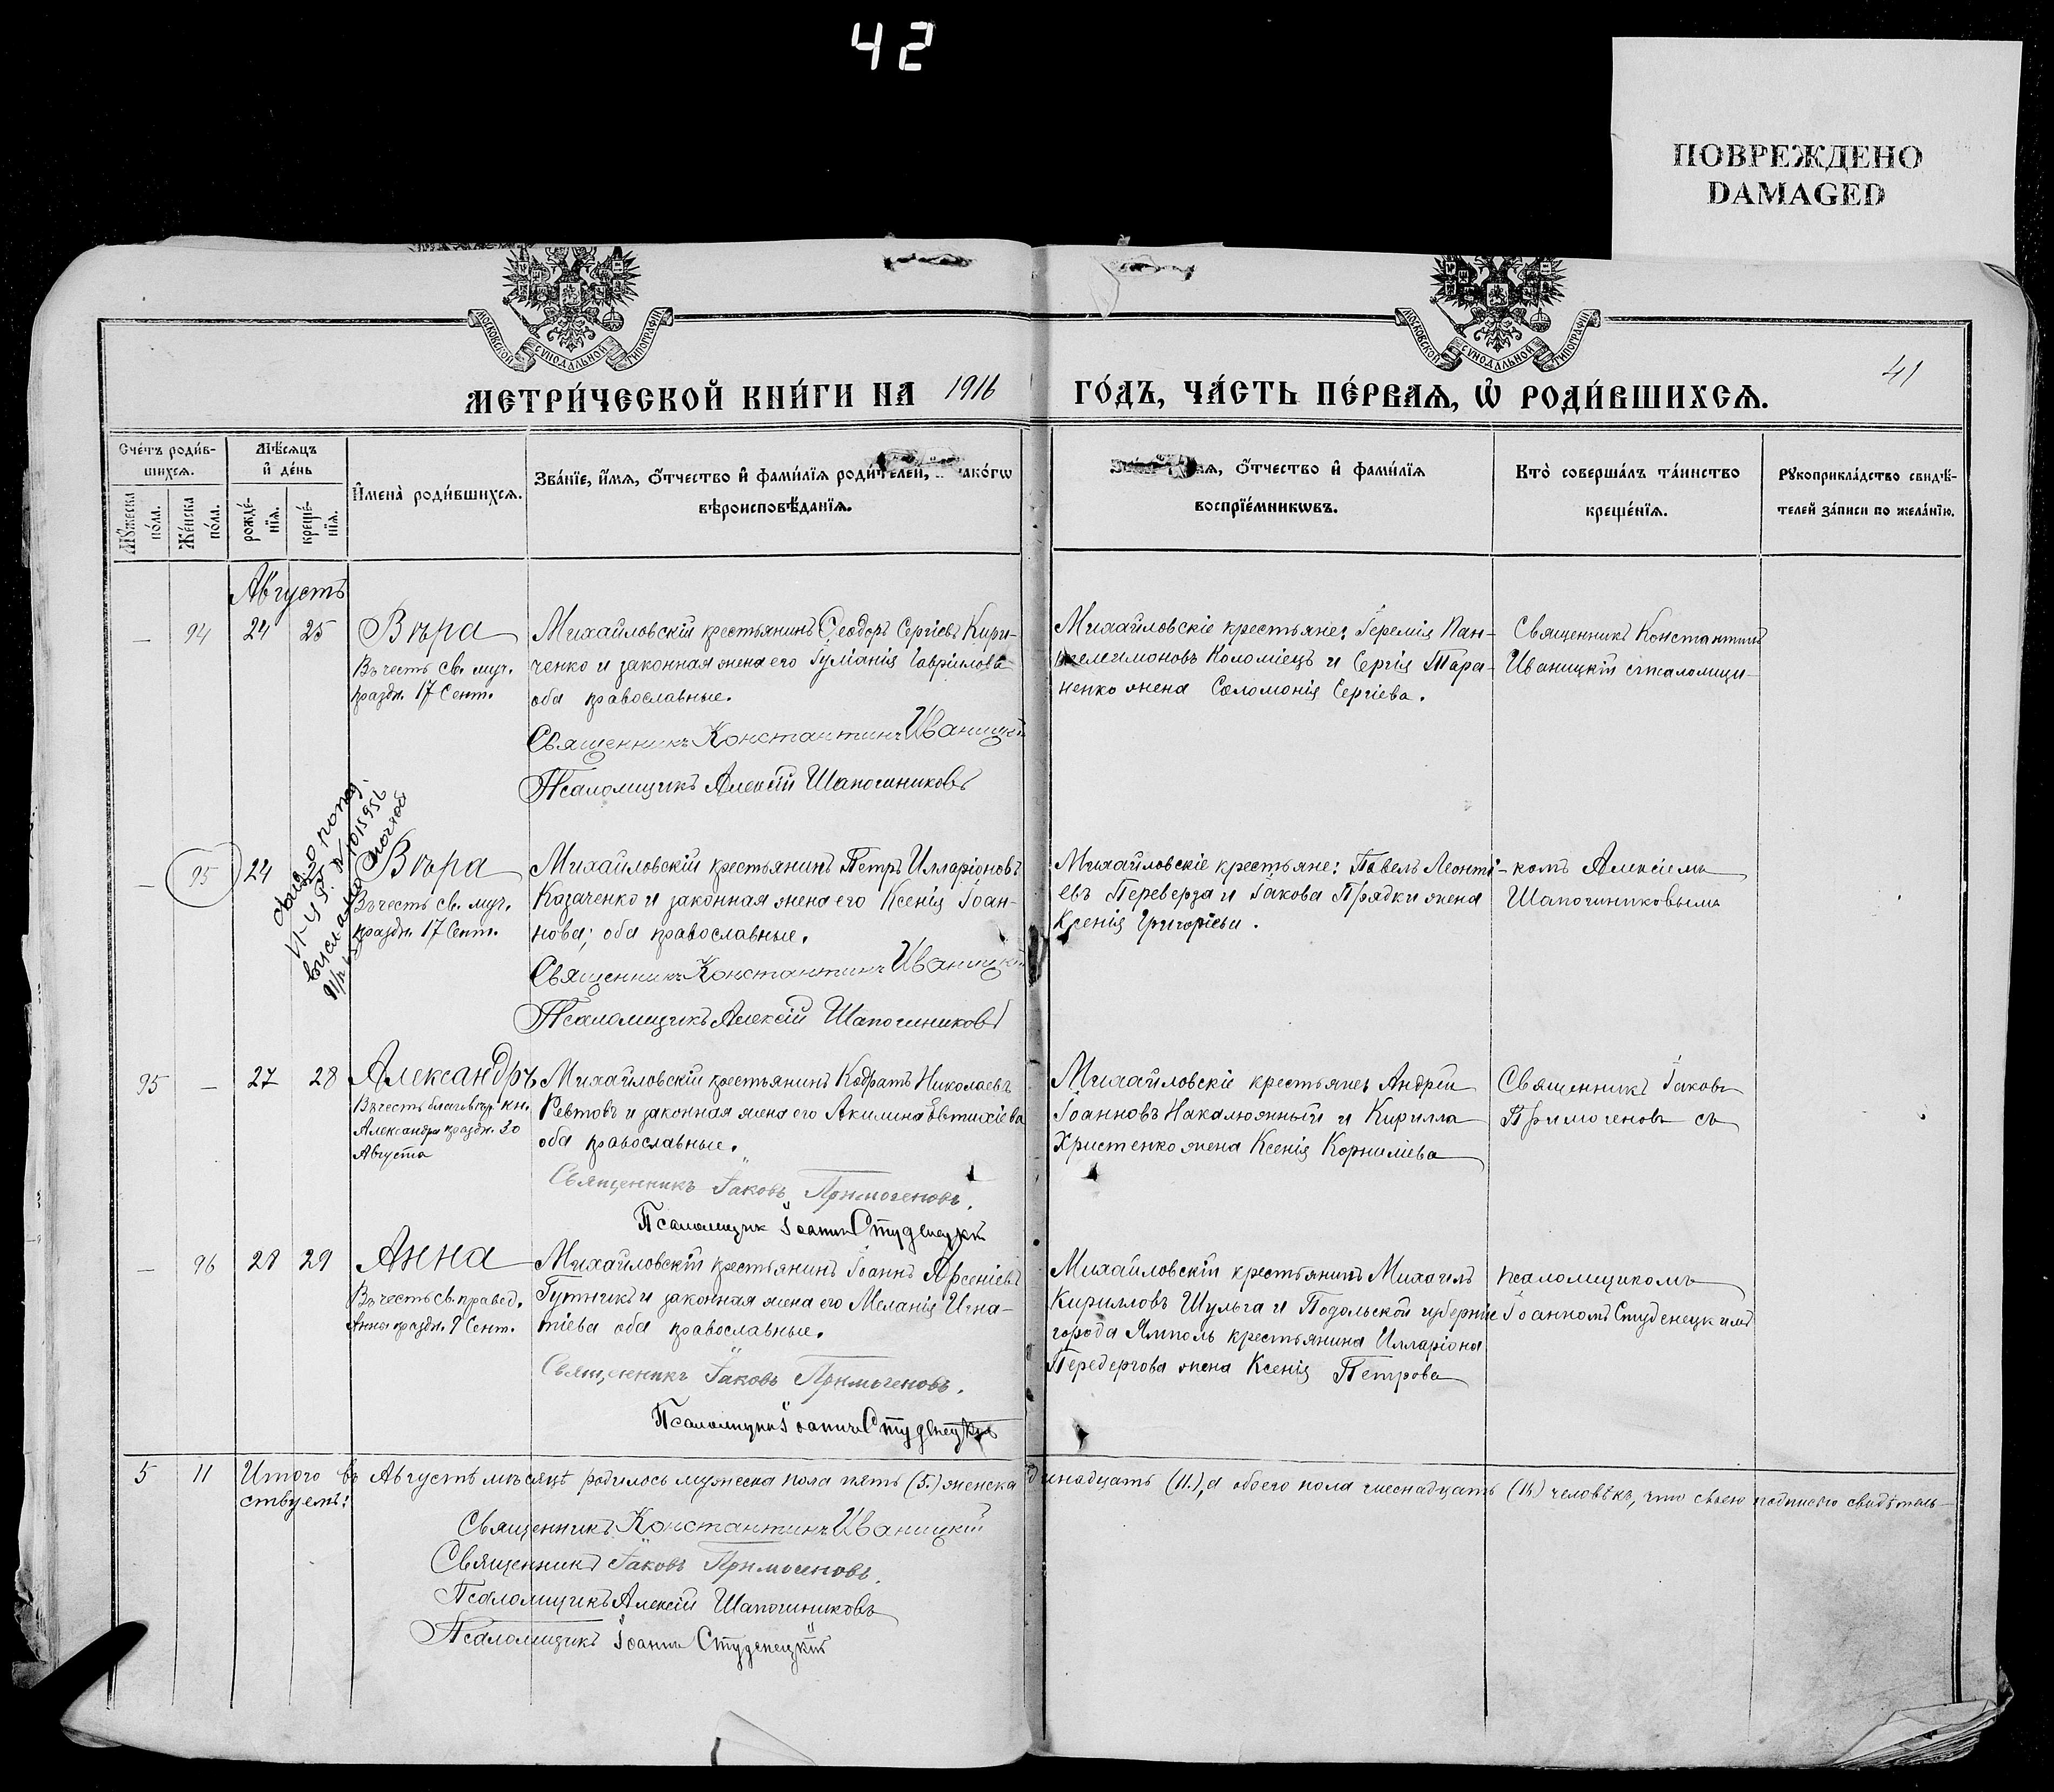 42
ПОВРЕЖДЕНО
DAMAGED
МОСКОВСКОЙ СѴНОДАЛЬНОЙ ТИПОГРАФІИ
МОСКОВСКОЙ СѴНОДАЛЬНОЙ ТИПОГРАФІИ
41
МЕТРИ́ЧЕСКОЙ КНИ́ГИ НА 1916 ГО́ДЪ, ЧА́СТЬ ПЕ́РВАѦ, Ѡ҆ РОДИ́ВШИХСѦ.
Сче́тъ роди́в-
шихсѧ.
Мѣ́сѧцъ
и҆ де́нь
И҆мена̀ роди́вшихсѧ.
Зва́нїе, и҆́мѧ, ѻ҆́тчество и҆ фами́лїѧ роди́телей, акогѡ
вѣроисповѣ́данїѧ.
ѻ҆́тчество и҆ фами́лїѧ
воспрїе́мникѡвъ.
Кто̀ соверша́лъ та́инство
креще́нїѧ.
Рꙋкоприкла́дство свидѣ́-
телей за́писи по жела́нїю.
Мꙋ́жеска
по́ла.
Же́нска
по́ла.
рожде́-
нїѧ.
креще́-
нїѧ.
Августъ
— 94 24 25 Вѣра
Въ честь св. муч.
праздн. 17 Сент.
Михайловскій крестьянинъ Ѳеодоръ Сергіевъ Кири-
ченко и законная жена его Іуліанія Гаврилова
оба православные.
Священникъ Константинъ Иваницкій
Псаломщикъ Алексій Шапошниковъ
Михайловскіе крестьяне: Іеремія Пан-
телеимоновъ Коломіецъ и Сергія Тара-
ненко жена Соломонія Сергіева.
Священникъ Константинъ
Иваницкій съ псаломщи-
— 95 24 Вѣра
Въ честь св. муч.
праздн. 17 Сент.
Михайловскій крестьянинъ Петръ Илларіоновъ
Казаченко и законная жена его Ксенія Іоан-
нова; оба православные.
Священникъ Константинъ Иваницкій
Псаломщикъ Алексій Шапошниковъ
Михайловскіе крестьяне: Павелъ Леонті-
евъ Переверза и Іакова Прядки жена
Ксенія Григоріева.
комъ Алексіемъ
Шапошниковымъ
95 — 27 28 Александръ
Въ честь благовѣр. кн.
Александра праздн. 30
Августа
Михайловскій крестьянинъ Кодратъ Николаевъ
Ревтовъ и законная жена его Акилина Евтихіева
оба православные.
Священникъ Іаковъ Примогеновъ.
Псаломщик Іоаннъ Студенецкій
Михайловскіе крестьяне: Андрей
Іоанновъ Накалюжный и Кирилла
Христенко жена Ксенія Корниліева
Священникъ Іаковъ
Примогеновъ съ
— 96 28 29 Анна
Въ честь св. правед.
Анны праздн. 9 Сент.
Михайловскій крестьянинъ Іоаннъ Арсеніевъ
Гутникъ и законная жена его Меланія Игна-
тіева оба православные.
Священникъ Іаковъ Примогеновъ.
Псаломщикъ Іоаннъ Студенецкій
Михайловскій крестьянинъ Михаилъ
Кирилловъ Шульга и Подольской губерніи
города Ямполь крестьянина Илларіона
Передергова жена Ксенія Петрова
псаломщикомъ
Іоанномъ Студенецкимъ
5 11 Итого въ Августѣ мѣсяцѣ родилось мужеска пола пять (5.) женска динадцать (11.), а обоего пола шеснадцать (16) человѣкъ, что своею подписью свидѣтель-
ствуемъ:
Священникъ Константинъ Иваницкій
Священникъ Іаковъ Примогеновъ.
Псаломщикъ Алексій Шапошниковъ
Псаломщикъ Іоаннъ Студенецкій